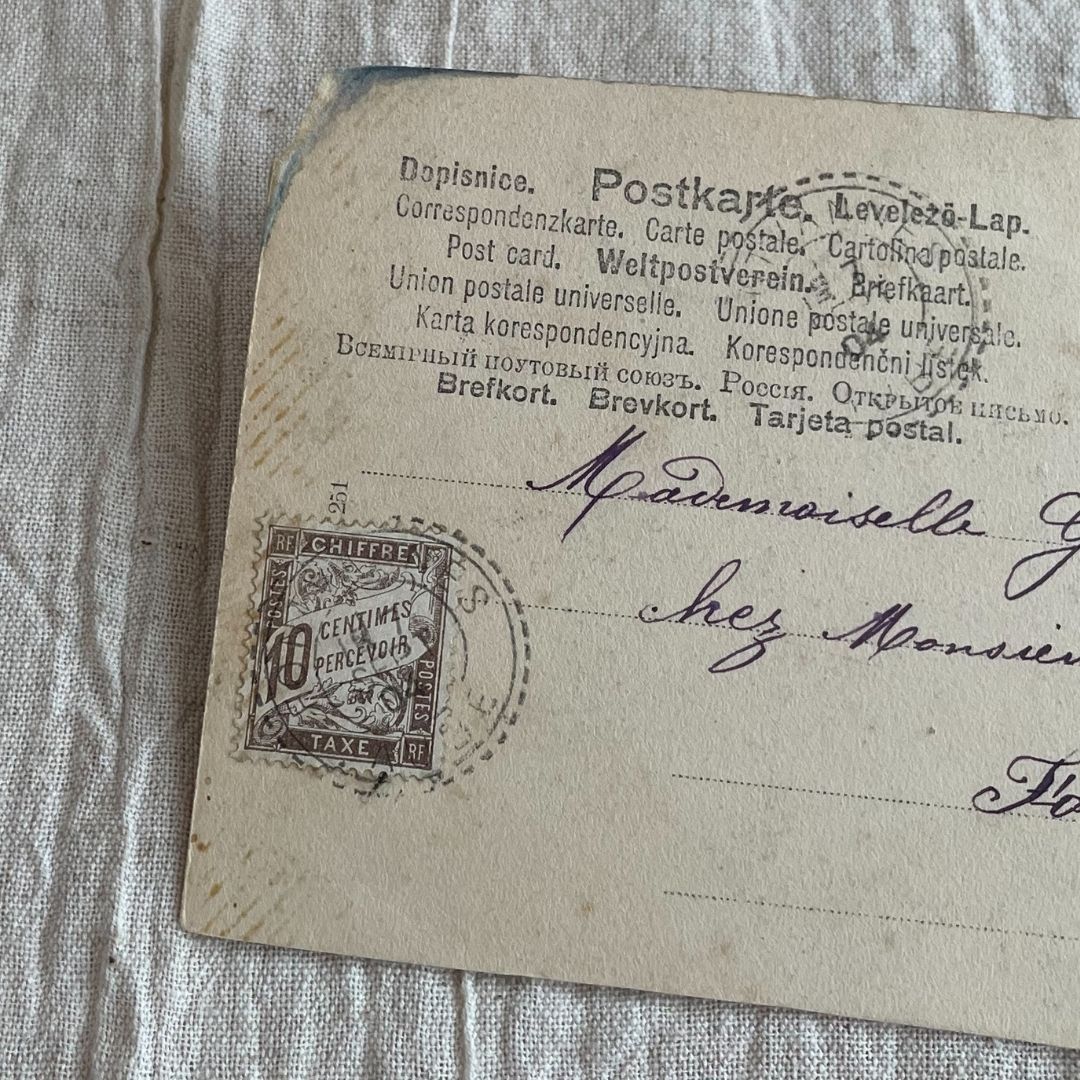 Dopisnice. Postkarte. Levelező-Lap.
Correspondenzkarte. Carte postale. Cartolina postale.
Post card. Weltpostverein. Briefkaart.
Union postale universelle. Unione postale universale.
Karta korespondencyjna. Korespondenční lístek.
Всемірный поутовый союзъ. Россія. Открытое письмо.
Brefkort. Brevkort. Tarjeta postal.
Mademoiselle G
251
RF CHIFFRE
POSTES
10 CENTIMES
PERCEVOIR
POSTES
TAXE RF
chez Monsieu
Fo
04